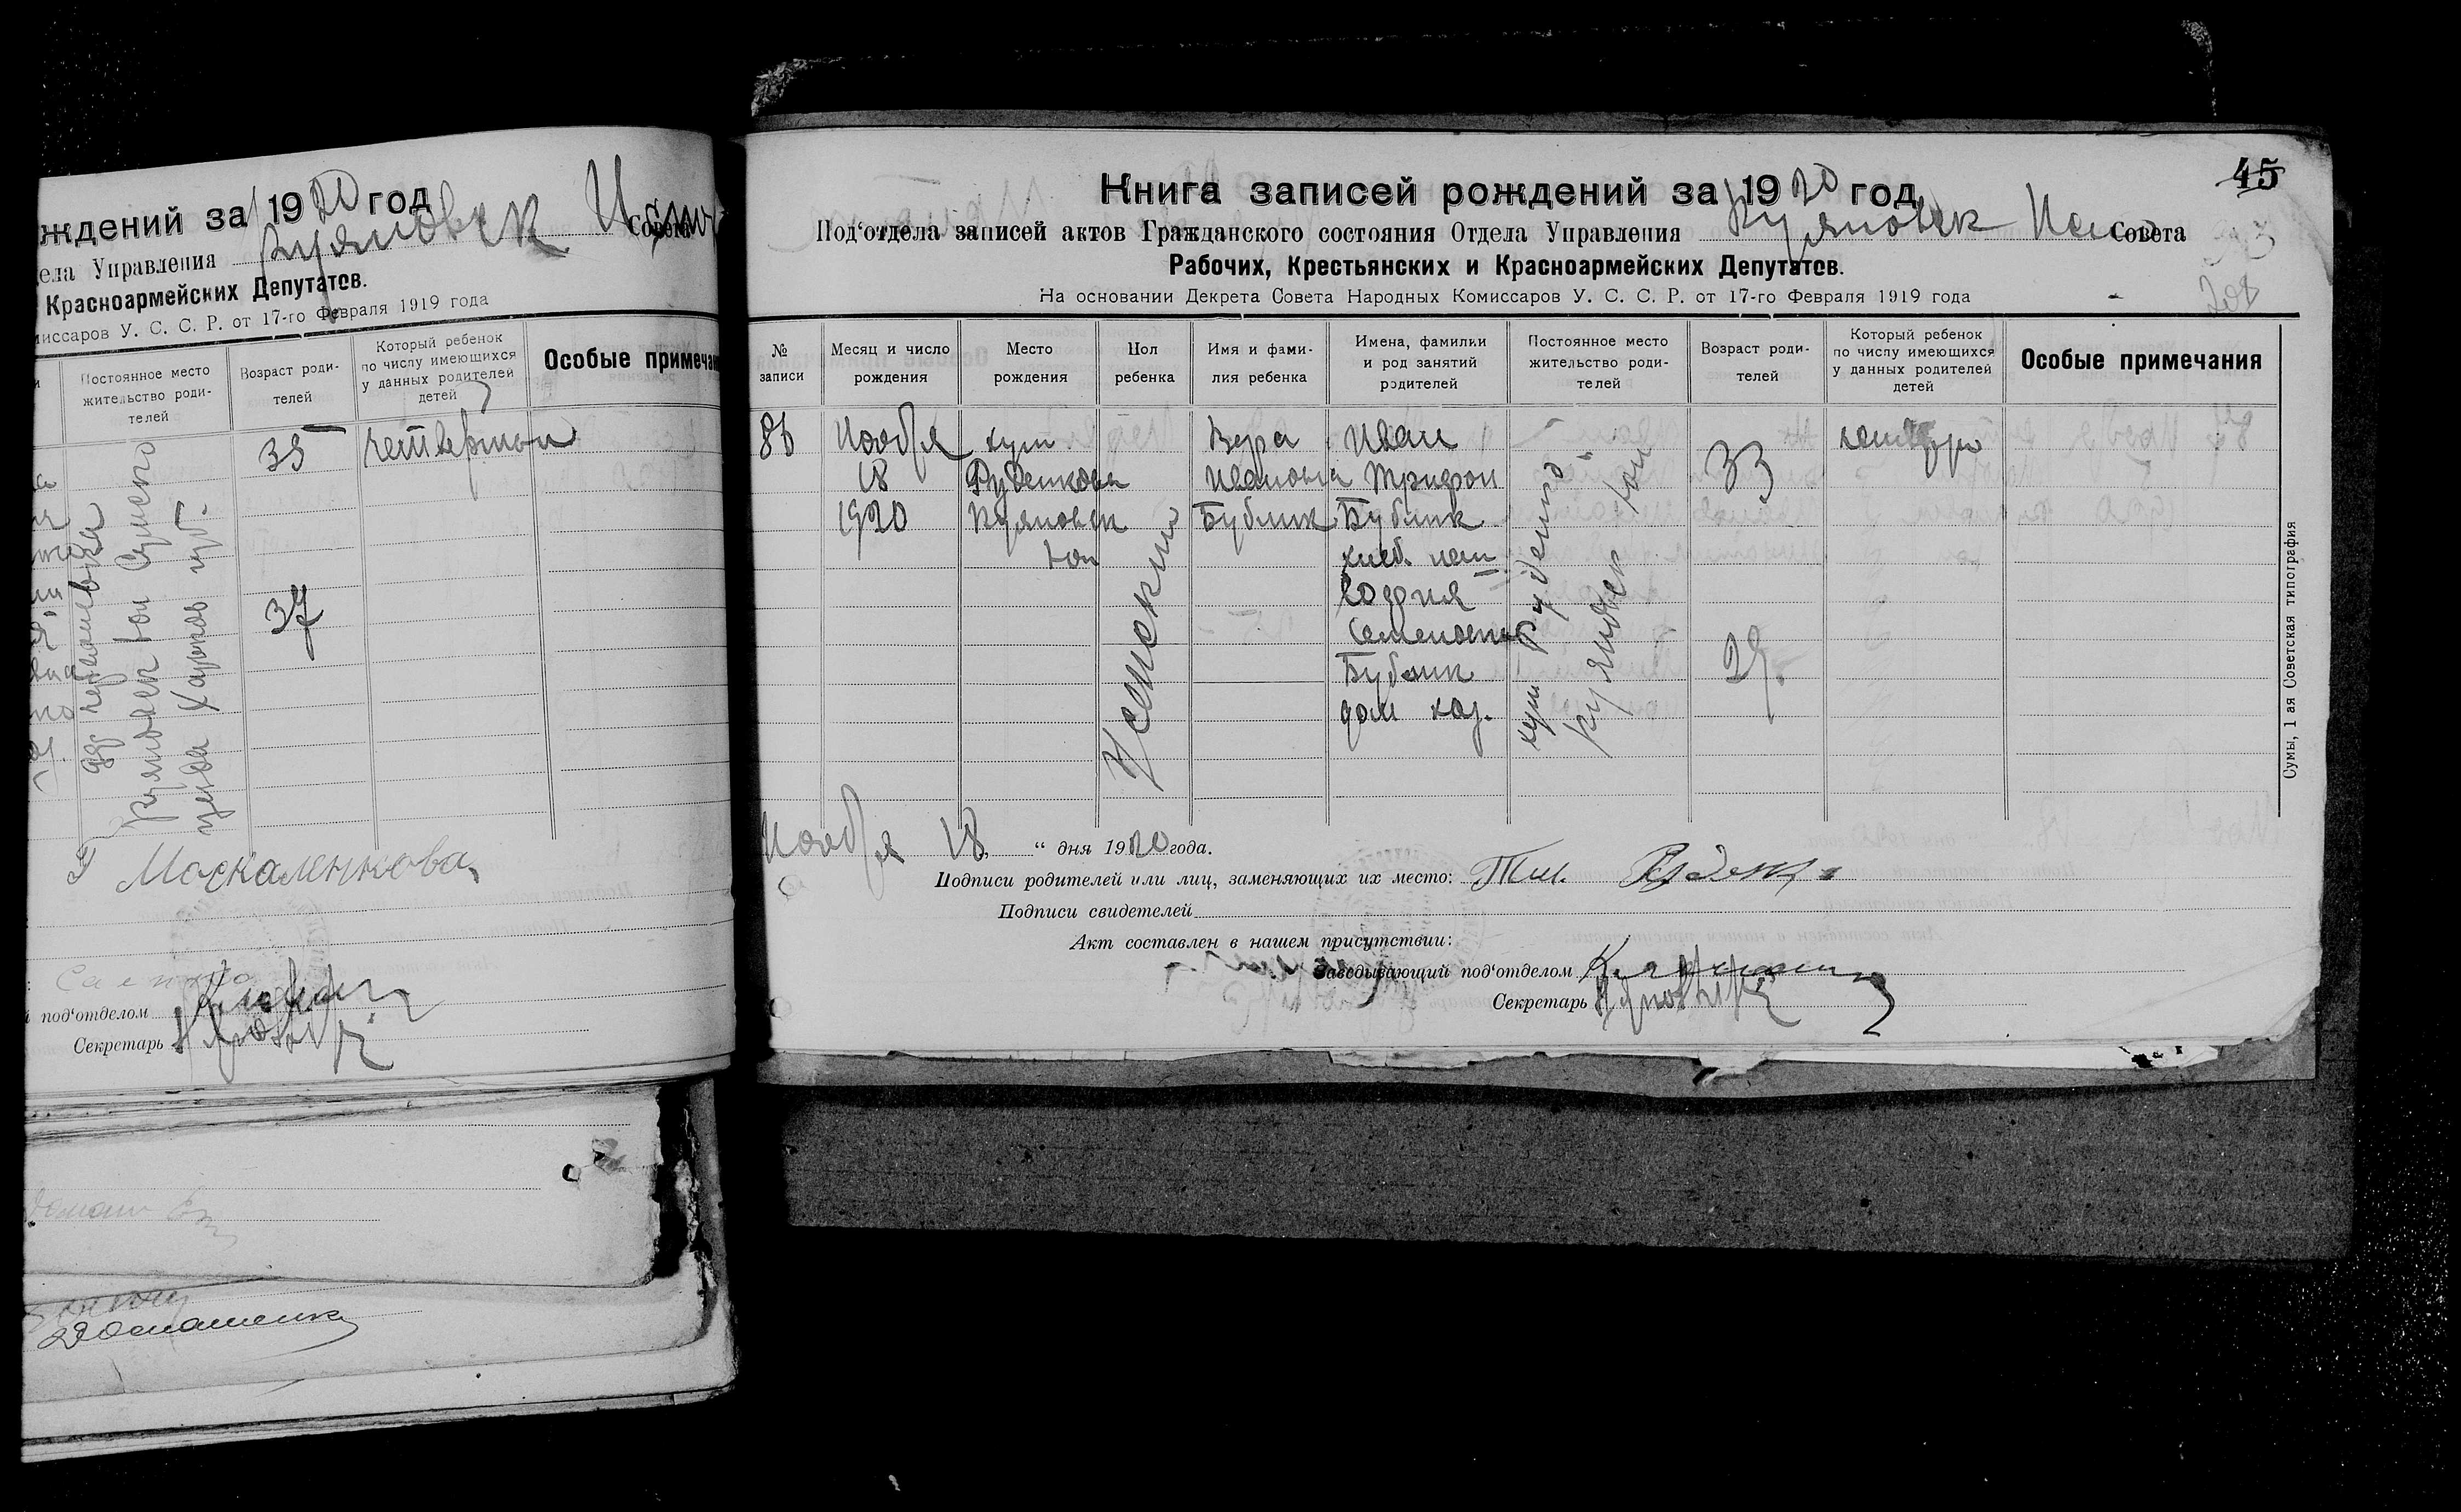 ждений за 1920 год
дела Управления Куяновск Совета
Красноармейских Депутатов.
миссаров У. С. С. Р. от 17-го Февраля 1919 года
Постоянное место жительство роди-телей
Возраст роди-телей
Который ребенок по числу имеющихся у данных родителей детей
Особые примечан
35
четвертый
37
Куяновск вол Сумского
уезда Харьков губ.
Москаленкова
Саенко
под‘отделом
Секретарь
45
208
Книга записей рождений за 1920 год
Под‘отдела записей актов Гражданского состояния Отдела Управления Куяновск Совета
Рабочих, Крестьянских и Красноармейских Депутатов.
На основании Декрета Совета Народных Комиссаров У. С. С. Р. от 17-го Февраля 1919 года
№ записи
Месяц и число рождения
Место рождения
Пол ребенка
Имя и фами-лия ребенка
Имена, фамилии и род занятий родителей
Постоянное место жительство роди-телей
Возраст роди-телей
Который ребенок по числу имеющихся у данных родителей детей
Особые примечания
86
Ноября
18
1920
хут
Руденкова
Куяновск
вол
Женский
Вера
Ивановна
Бублик
Иван
Трифон
Бублик
хлеб. паш
София
Семеновна
Бублик
дом хоз.
хут Руденково
Куяновск вол
33
29
четверо
Ноября 18 “ дня 1920 года.
Подписи родителей или лиц, заменяющих их место: Тим. Руденко
Подписи свидетелей
Акт составлен в нашем присутствии:
Заведывающий под‘отделом
Секретарь
Сумы, 1 ая Советская типография